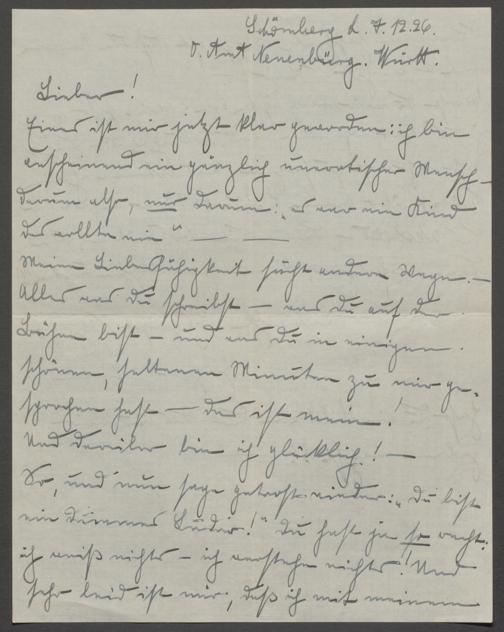 Schömberg d. 7.12.26.
O. Amt Neuenbürg. Württ.
Lieber!
Eines ist mir jetzt klar geworden: ich bin
anscheinend ein gänzlich unerotischer Mensch –
darum also, nur darum: „es war ein Kind
das wollte nie“ — —
Meine Liebesfähigkeit sucht andere Wege. –
Alles was du schreibst – was du auf der
Bühne bist – und was du in einigen
schönen, seltenen Minuten zu mir ge-
sprochen hast – das ist mein!
Und darüber bin ich glücklich! –
So, und nun sage getrost wieder: „du bist
ein dummes Luder!“ du hast ja so recht:
ich weiß nichts – ich verstehe nichts! Und
sehr leid ist mir, daß ich mit meinem